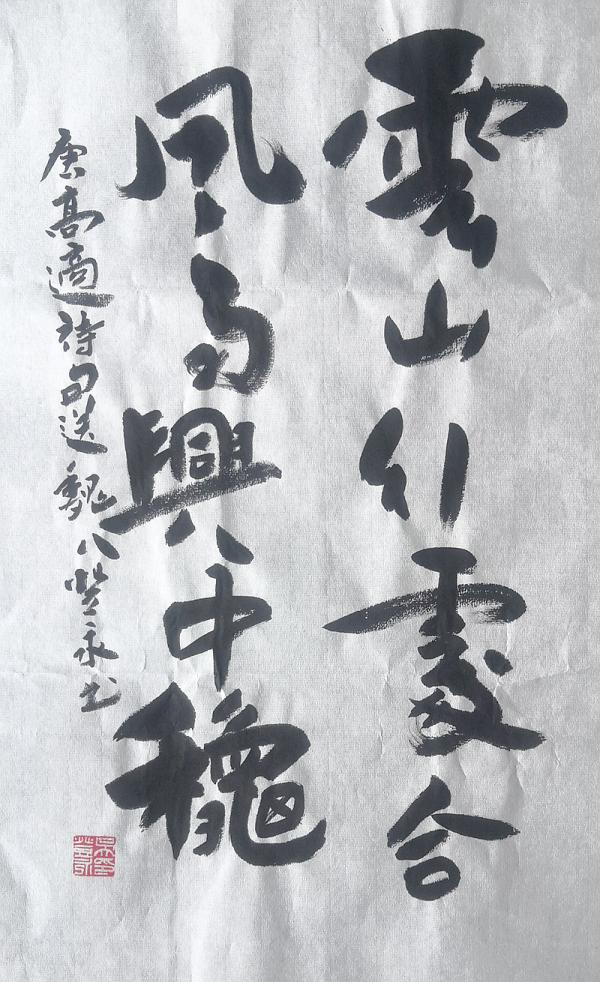 雲山行處合
風雨興中龝
唐高適詩句送魏八 永书